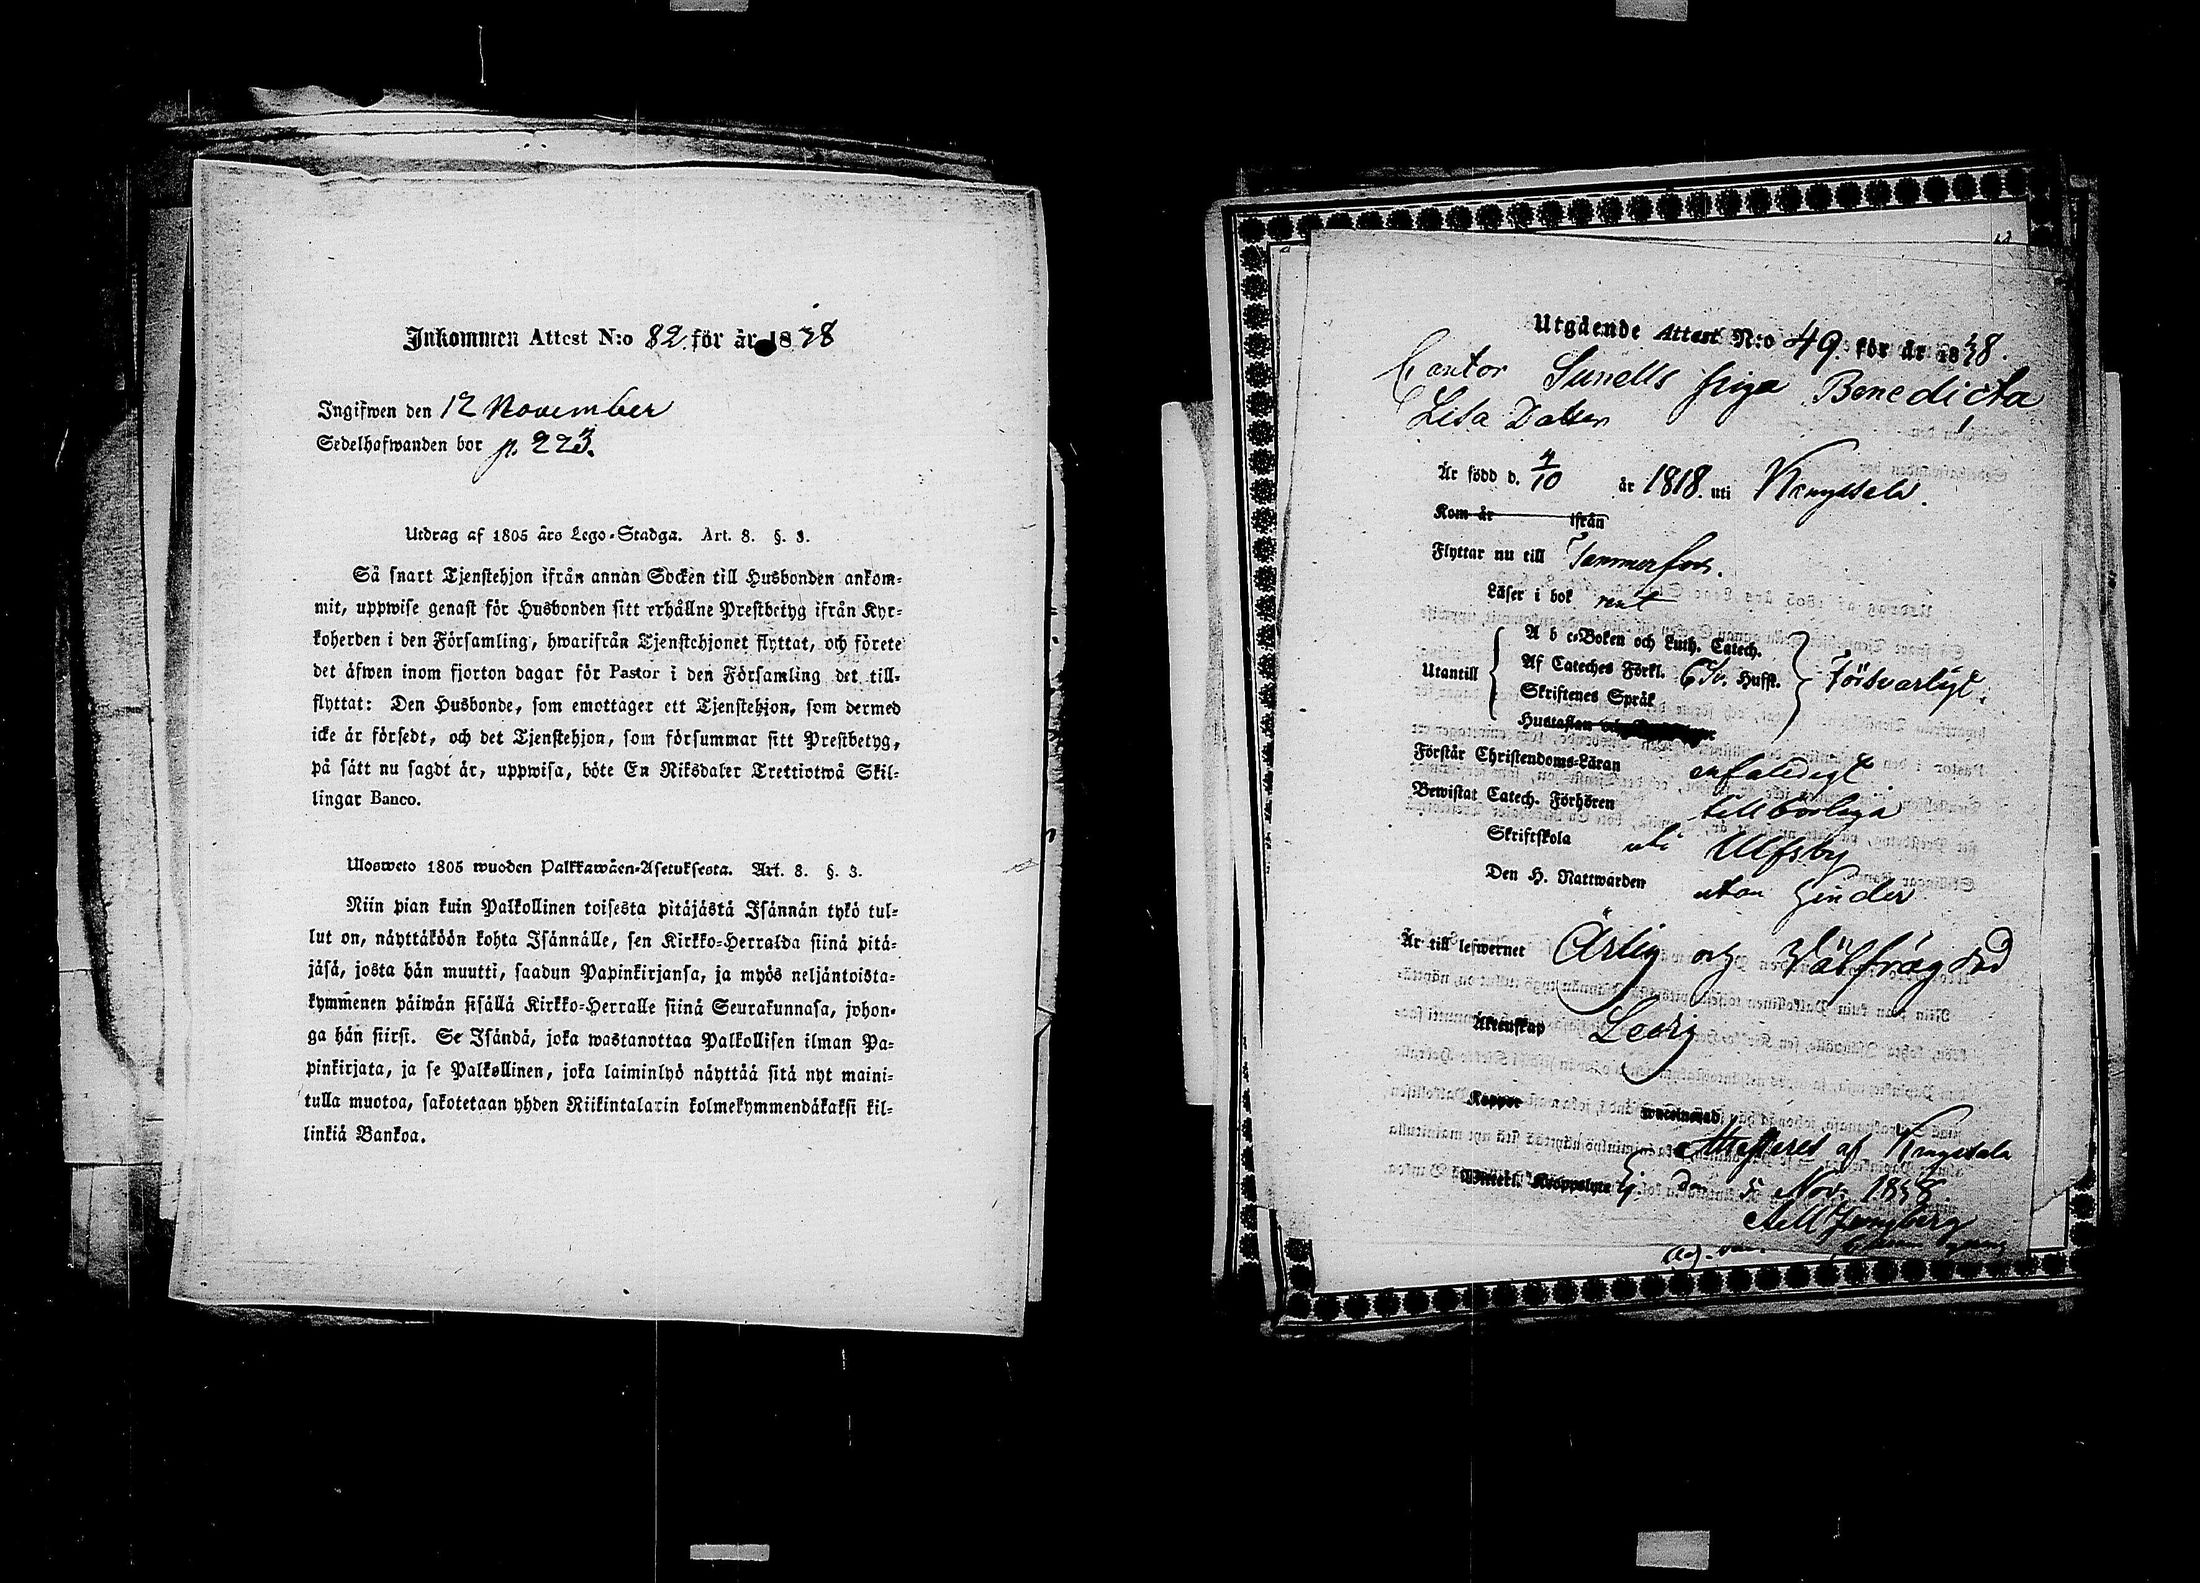 Inkommen Attest N:o 82 för år 1838
Ingifwen den 12 November
Sedelhafwanden bor p. 223.
Utdrag af 1805 års Lego-Stadga. Art. 8. §. 3.
Så snart Tjenstehjon ifrån annan Socken till Husbonden ankom-
mit, uppwise genast för Husbonden sitt erhållne Prestbetyg ifrån Kyr-
koherden i den Församling, hwarifrån Tjenstehjonet flyttat, och förete
det äfwen inom fjorton dagar för Pastor i den Församling det till-
flyttat: Den Husbonde, som emottager ett Tjenstehjon, som dermed
icke är försedt, och det Tjenstehjon, som försummar sitt Prestbetyg,
på sätt nu sagdt är, uppwisa, böte En Riksdaler Trettiotwå Skil-
lingar Banco.
Ulosweto 1805 wuoden Palkkawäen-Asetuksesta. Art. 8. §. 3.
Niin pian kuin Palkollinen toisesta pitäjästä Isännän tykö tul-
lut on, näyttäköön kohta Isännälle, sen Kirkko-Herralda siinä pitä-
jäsä, josta hän muutti, saadun Papinkirjansa, ja myös neljäntoista-
kymmenen päiwän sisällä Kirkko-Herralle siinä Seurakunnasa, johon-
ga hän siirsi. Se Isändä, joka wastanottaa Palkollisen ilman Pa-
pinkirjata, ja se Palkollinen, joka laiminlyö näyttää sitä nyt maini-
tulla muotoa, sakotetaan yhden Riikintalarin kolmekymmendäkaksi kil-
linkiä Bankoa.
Utgående Attest N:o 49. för år 1838.
Cantor Sunells piga Benedicta
Lisa Dotter
Är född d. 4/10 år 1818. uti Kangasala.
Kom år ifrån
Flyttar nu till Tammerfors.
Läser i bok rent
A b c-Boken och Luth. Catech.
Utantill Af Cateches Förkl. Hufst. Försvarligt.
Skriftenes Språk
Hustaflan
Förstår Christendoms-Läran enfaldigt
Bewistat Catech. Förhören tillbörliga
Skriftskola uti Ulfsby
Den H. Nattwarden utan hinder
Är till lefwernet Ärlig och Välfrägdad
Äktenskap Ledig
Koppor
Attesteret af Kangasala
den 5 Nov. 1838.